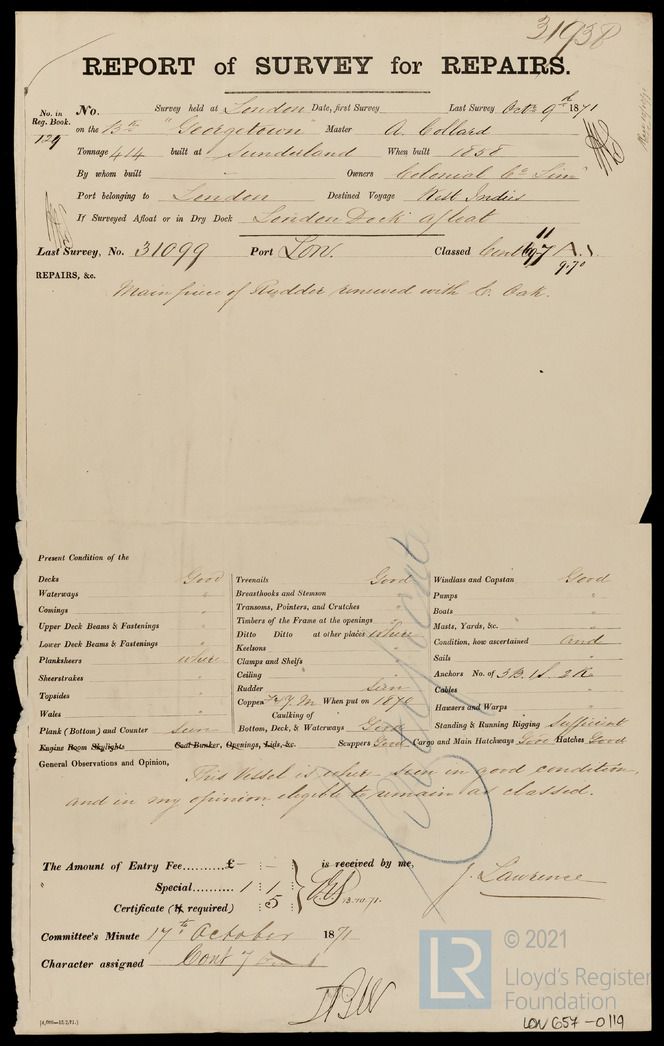 31938
REPORT of SURVEY for REPAIRS.
No. in Reg. Book. No. Survey held at London Date, first Survey Last Survey Octr 9th 1871
129 on the "Georgetown" Master A. Collard
Tonnage 414 built at Sunderland When built 1858
By whom built Owners Colonial Co Lim
Port belonging to London Destined Voyage West Indies
If Surveyed Afloat or in Dry Dock London Dock afloat
Last Survey, No. 31099 Port Lon. Classed
9.70
REPAIRS, &c.
Main piece of Rudder renewed with E. Oak.
Present Condition of the
Decks Good Treenails Good Windlass and Capstan Good
Waterways " Breasthooks and Stemson Pumps "
Comings " Transoms, Pointers, and Crutches Boats "
Upper Deck Beams & Fastenings " Timbers of the Frame at the openings " Masts, Yards, &c. "
Lower Deck Beams & Fastenings " Ditto Ditto at other places where Condition, how ascertained and
Planksheers where Keelsons " Sails "
Sheerstrakes " Clamps and Shelfs " Anchors No. of 3B. 1S. 2K
Topsides " Ceiling " Cables "
Wales " Rudder seen Hawsers and Warps "
Plank (Bottom) and Counter seen Copper Y.M. When put on 1870 Standing & Running Rigging Sufficient
Caulking of Bottom, Deck, & Waterways Good
Engine Room Skylights Coal Bunker, Openings, Lids, &c. Scuppers Good Cargo and Main Hatchways Good Hatches Good
General Observations and Opinion,
This Vessel is where seen in good condition,
and in my opinion eligible to remain as classed.
The Amount of Entry Fee.........£ - : - : is received by me,
" Special.......... 1 : 1
Certificate (if required) : 5 13.10.71.
J. Lawrence
Committee's Minute 17th October 1871
Character assigned Cont 7
[4,000—13/2/71.]
LR
© 2021
Lloyd's Register
Foundation
LON 657-0119